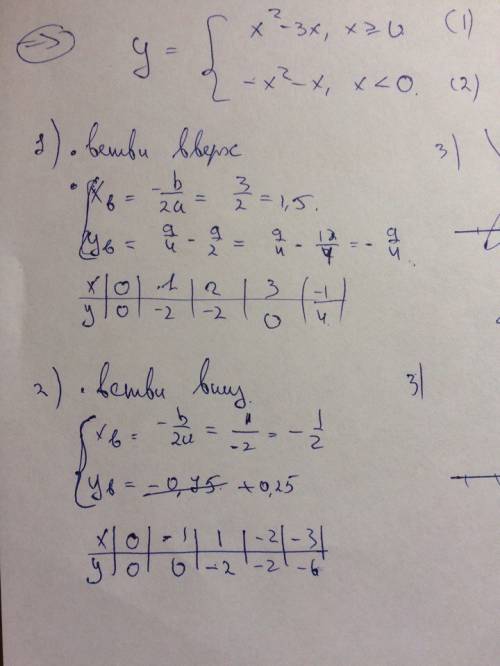 => y = { x² - 3x, x ≥ 0 (1)
-x² - x, x < 0. (2)
1) • ветви вверх
• { xв = -b/2a = 3/2 = 1,5.
yв = 9/4 - 9/2 = 9/4 - 18/4 = - 9/4.
x | 0 | 1 | 2 | 3 | (-1
y | 0 | -2 | -2 | 0 | 4 |
3)
2) • ветви вниз.
{ xв = -b/2a = 1/-2 = - 1/2
yв = -0,75 +0,25
x | 0 | -1 | 1 | -2 | -3 |
y | 0 | 0 | -2 | -2 | -6
3)